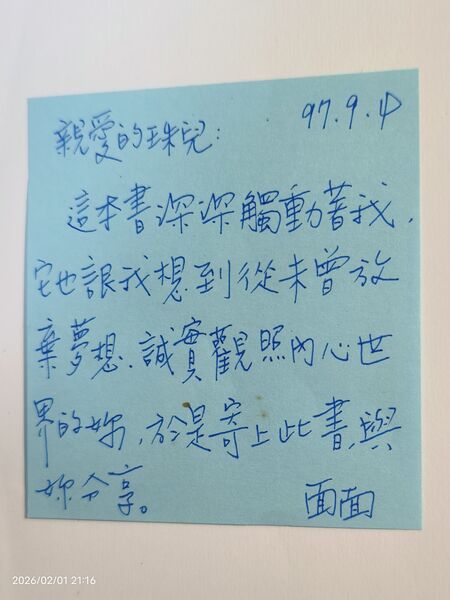 97.9.4
親愛的珠兒：
這本書深深觸動著我，
它也讓我想到從未曾放
棄夢想、誠實觀照內心世
界的妳，於是寄上此書，與
妳分享。
面面
2026/02/01 21:16